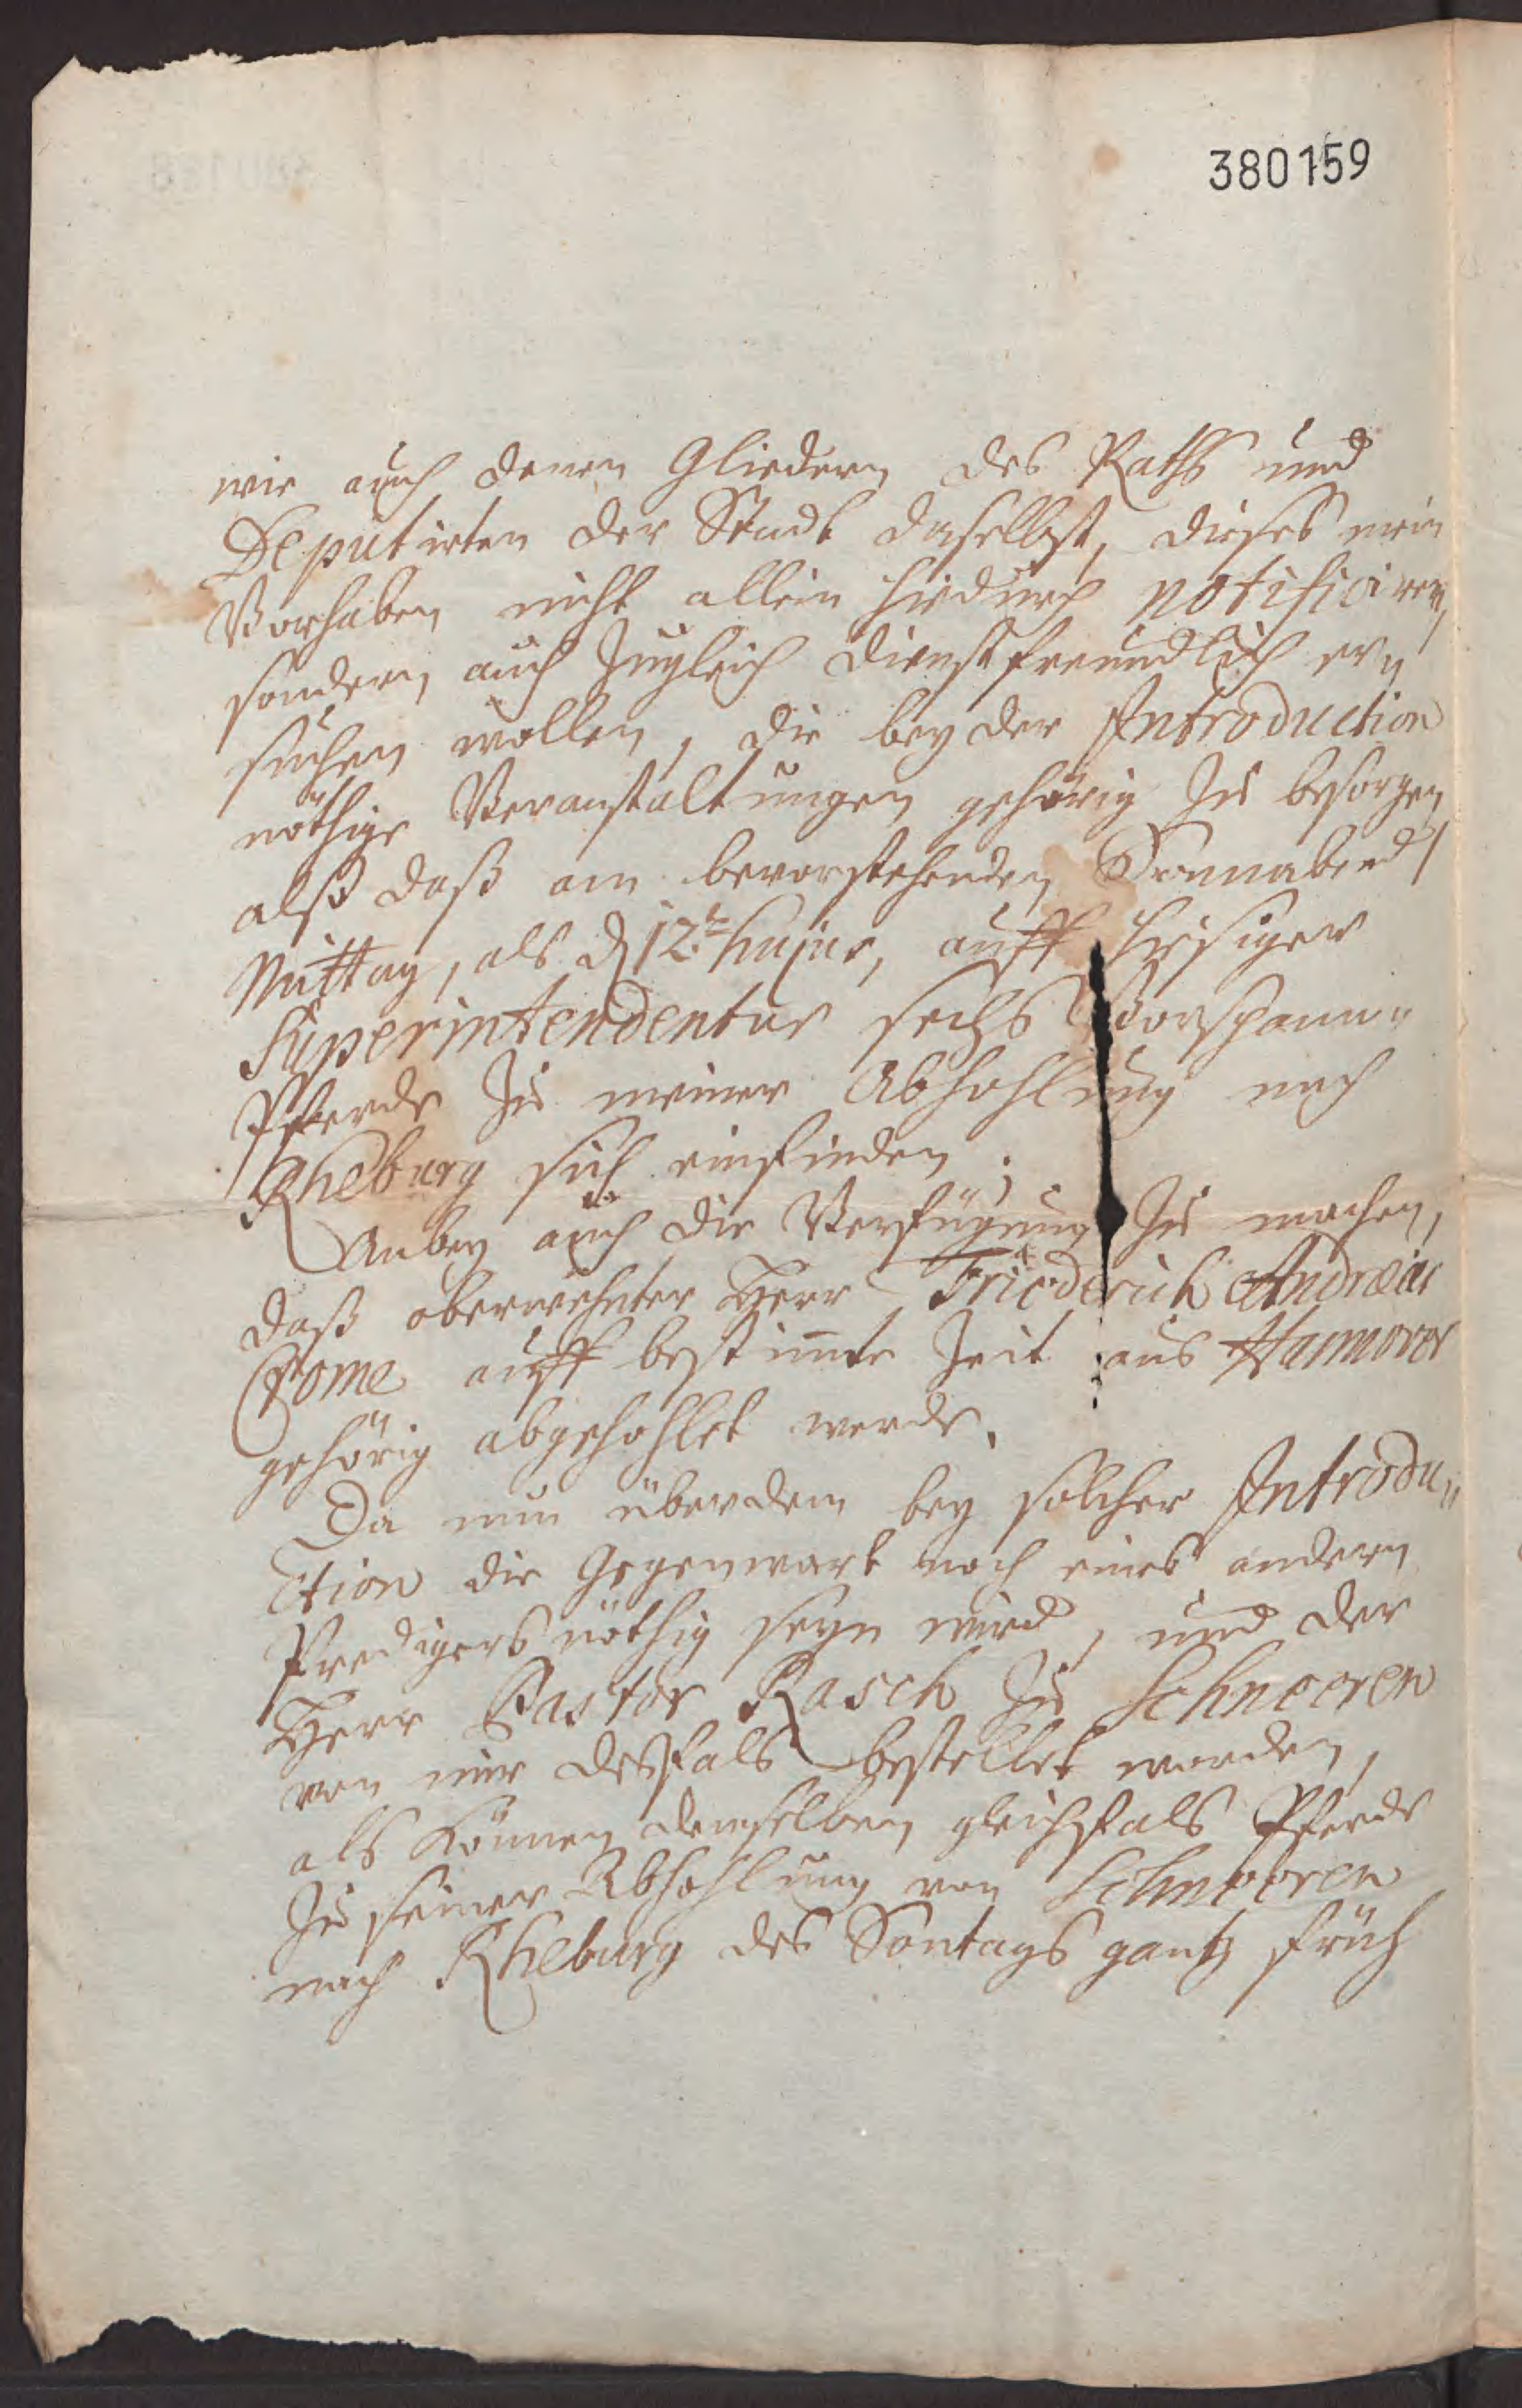 380159
wie auch denen Gliedern des Raths und
Deputirten der Stadt daselbst, dieses mein
Vorhaben nicht allein hiedurch notificiren,
sondern auch zugleich dienstfreundlich er„
suchen wollen, die bey der Introduction
nöthige Veranstaltungen gehörig zu besorgen
alß daß am bevorstehenden Sonnabend
Mittag, als d 12t hujus, auff hiesiger
Superintendentur sechs Vorspann„
Pferde zu meiner Abhohlung nach
Rheburg sich einfinden.
Anbey auch die Verfügung zu machen,
daß oberwehnter Herr Friederich Andreas
Crome auff bestim̅te Zeit aus Hannover
gehörig abgehohlet werde.
Da nun überdem bey solcher Introdu„
ction die Gegenwart noch eines andern
Predigers nöthig seyn wird, und der
Herr Pastor Rasch zu Schneeren
von mir desfals bestellet worden,
als können demselben gleichfals Pferde
zu seiner Abhohlung von Schneeren
nach Rheburg des Sontags gantz früh